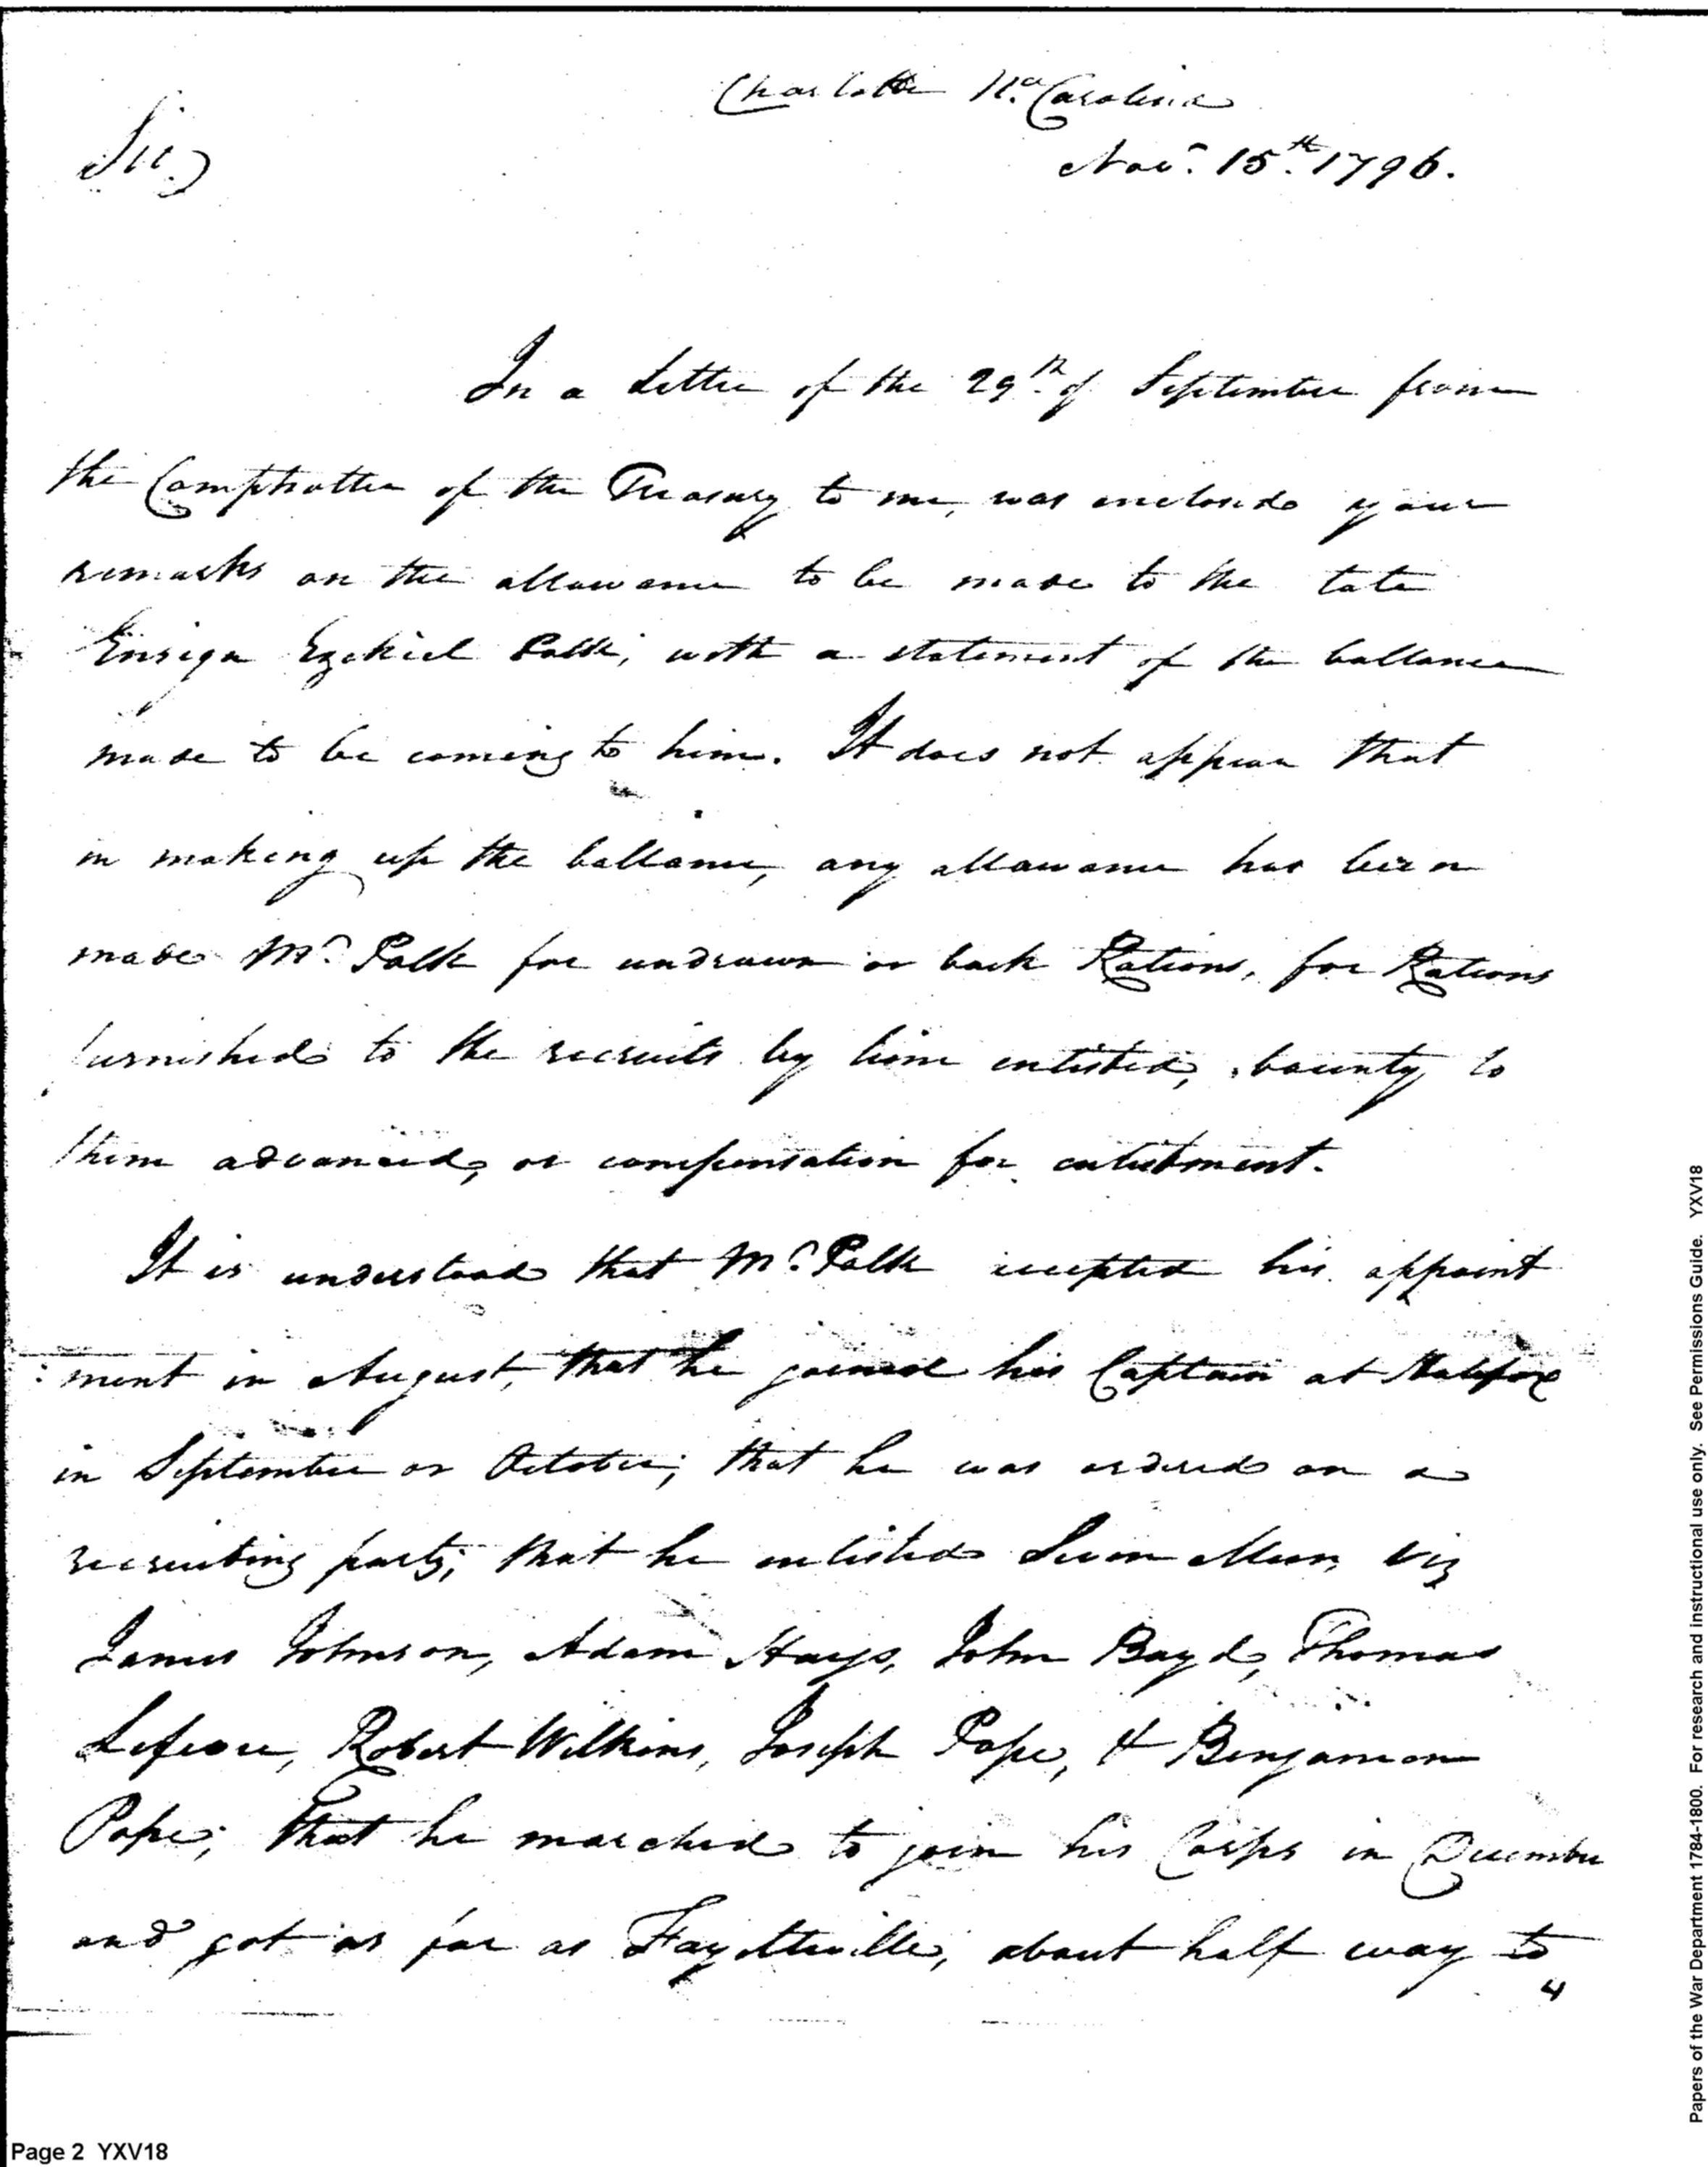 Charlotte No. Carolina
Sir,
Novr. 15th. 1796.
In a Letter of the 29th. of September from
the Comptroller of the Treasury to me, was enclosed your
remarks on the allowance to be made to the late
Ensign Ezekiel Polk, with a statement of the ballance
made to be coming to him. It does not appear that
in making up the ballance, any allowance has been
made Mr. Polk for undrawn or back Rations, for Rations
furnished to the recruits by him enlisted, bounty to
them advanced, or compensation for enlistment.
It is understood that Mr. Polk accepted his appoint
:ment in August, that he joined his Captain at Halifax
in September or October; that he was ordered on a
recruiting party; that he enlisted Seven Men, viz
James Johnson, Adam Hays, John Boyd, Thomas
Robert Wilkins, Joseph Pope, & Benjamin
Pope; that he marched to join his Corps in December
and got as far as Fayetteville, about half way to
4
Page 2 YXV18
Papers of the War Department 1784-1800. For research and instructional use only. See Permissions Guide. YXV18